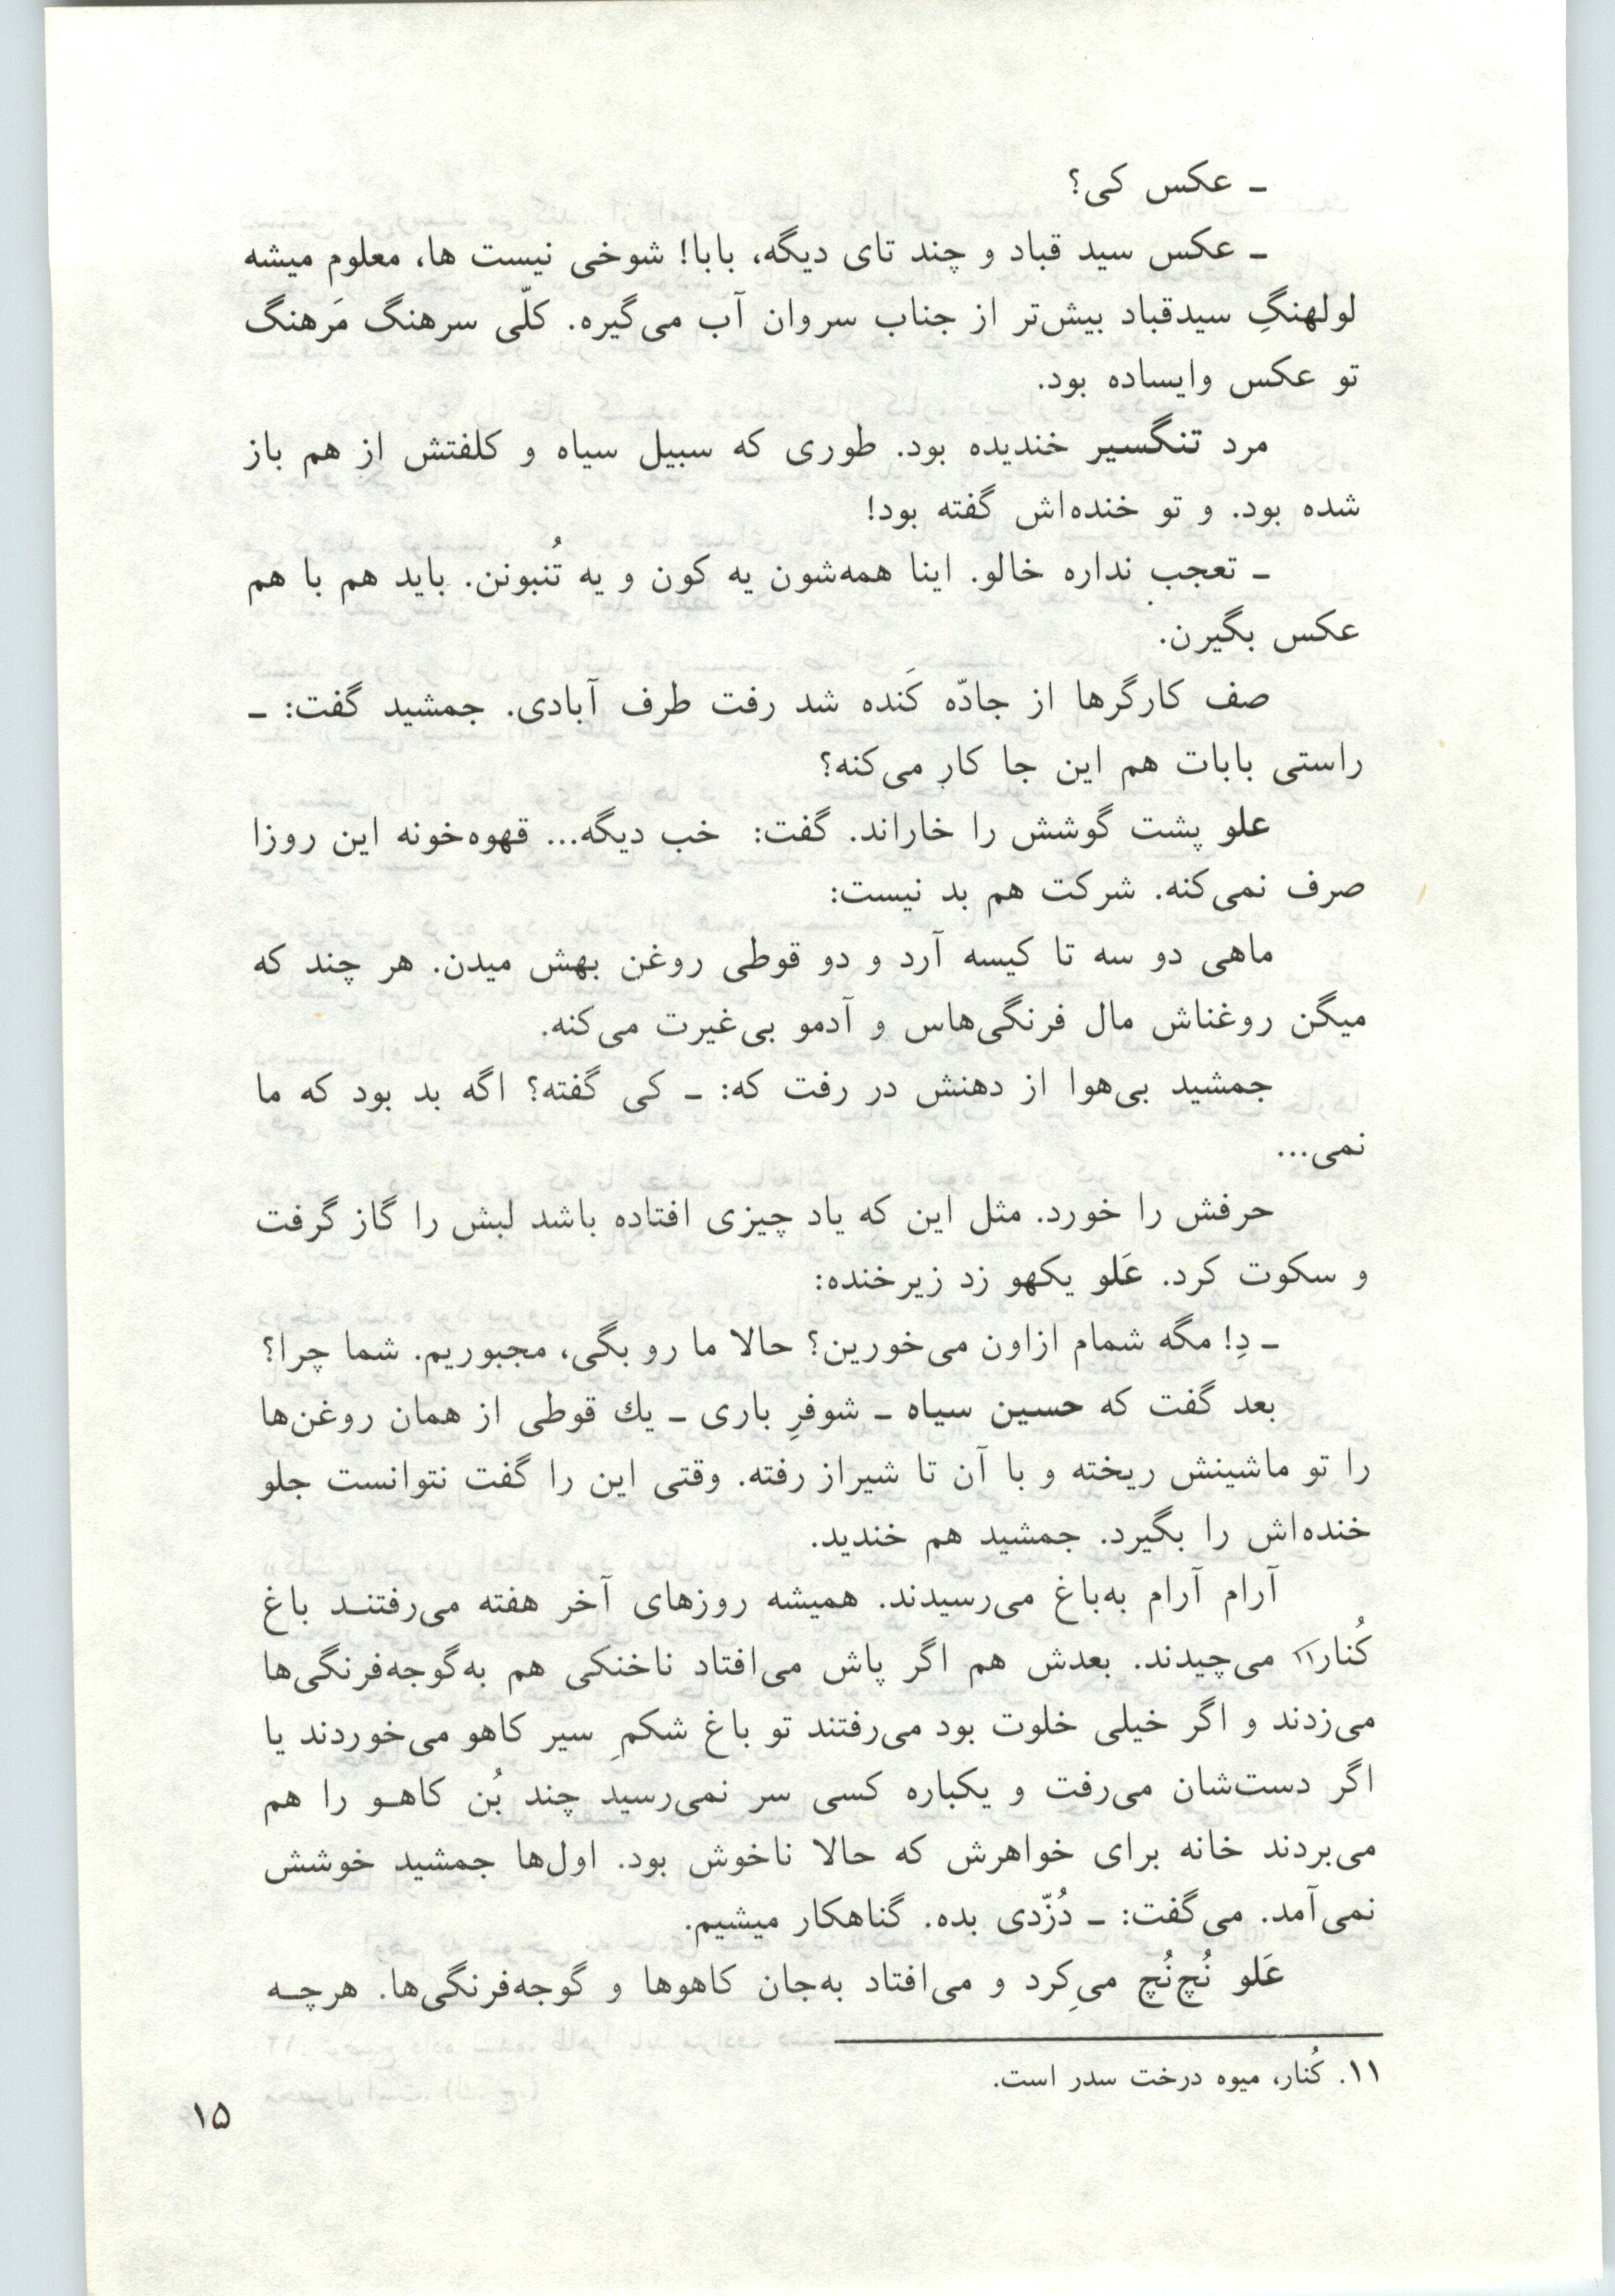 ـ عکس کی؟
ـ عکس سید قباد و چند تای دیگه، بابا! شوخی نیست ها، معلوم میشه
لولهنگِ سیدقباد بیش‌تر از جناب سروان آب می‌گیره. کلّی سرهنگ مَرهنگ
تو عکس وایساده بود.
مرد تنگسیر خندیده بود. طوری که سبیل سیاه و کلفتش از هم باز
شده بود. و تو خنده‌اش گفته بود!
ـ تعجب نداره خالو. اینا همه‌شون یه کون و یه تُنبونن. باید هم با هم
عکس بگیرن.
صف کارگرها از جادّه کَنده شد رفت طرف آبادی. جمشید گفت: ـ
راستی بابات هم این جا کار می‌کنه؟
علو پشت گوشش را خاراند. گفت: خب دیگه... قهوه‌خونه این روزا
صرف نمی‌کنه. شرکت هم بد نیست:
ماهی دو سه تا کیسه آرد و دو قوطی روغن بهش میدن. هر چند که
میگن روغناش مال فرنگی‌هاس و آدمو بی‌غیرت می‌کنه.
جمشید بی‌هوا از دهنش در رفت که: ـ کی گفته؟ اگه بد بود که ما
نمی...
حرفش را خورد. مثل این که یاد چیزی افتاده باشد لبش را گاز گرفت
و سکوت کرد. عَلو یکهو زد زیرخنده:
ـ دِ! مگه شمام ازاون می‌خورین؟ حالا ما رو بگی، مجبوریم. شما چرا؟
بعد گفت که حسین سیاه ـ شوفرِ باری ـ یك قوطی از همان روغن‌ها
را تو ماشینش ریخته و با آن تا شیراز رفته. وقتی این را گفت نتوانست جلو
خنده‌اش را بگیرد. جمشید هم خندید.
آرام آرام به‌باغ می‌رسیدند. همیشه روزهای آخر هفته می‌رفتنـد باغ
کُنار۱۱ می‌چیدند. بعدش هم اگر پاش می‌افتاد ناخنکی هم به‌گوجه‌فرنگی‌ها
می‌زدند و اگر خیلی خلوت بود می‌رفتند تو باغ شکمِ سیر کاهو می‌خوردند یا
اگر دست‌شان می‌رفت و یکباره کسی سر نمی‌رسید چند بُن کاهـو را هم
می‌بردند خانه برای خواهرش که حالا ناخوش بود. اول‌ها جمشید خوشش
نمی‌آمد. می‌گفت: ـ دُزّدی بده. گناهکار میشیم.
عَلو نُچ‌نُچ می‌کِرد و می‌افتاد به‌جان کاهوها و گوجه‌فرنگی‌ها. هرچـه
۱۱. کُنار، میوه درخت سدر است.
۱۵